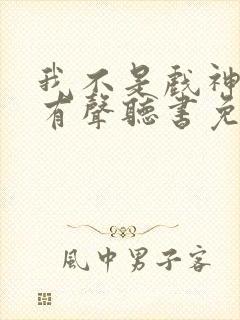 我不是戲神
有聲聽書免
風中男子客